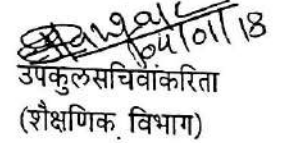 04/01/18
उपकुलसचिवांकरिता
(शैक्षणिक विभाग)